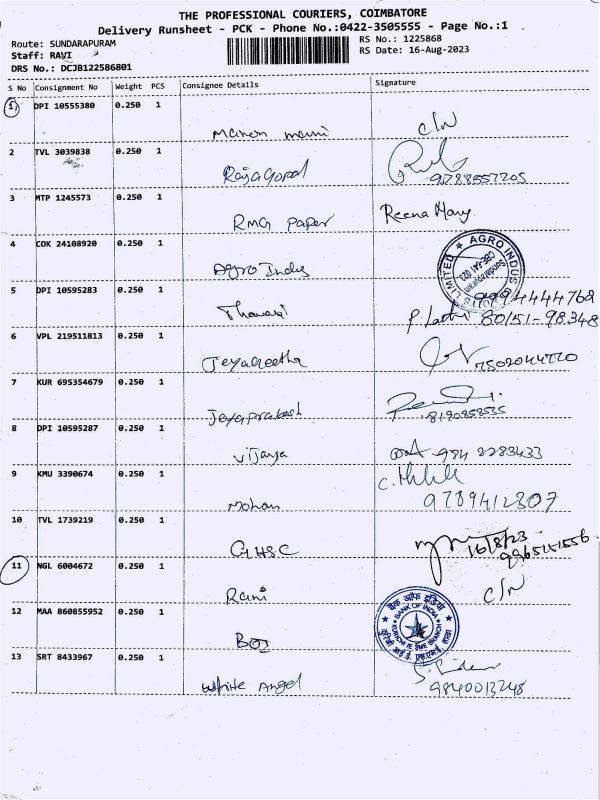 THE PROFESSIONAL COURIERS, COIMBATORE
Delivery Runsheet - PCK - Phone No.:0422-3505555 - Page No.:1
Route: SUNDARAPURAM
RS No.: 1225868
Staff: RAVI
RS Date: 16-Aug-2023
DRS No.: DCJB122586801
S No Consignment No Weight PCS Consignee Details Signature
1 DPI 10555380 0.250 1
Manon mani C/N
2 TVL 3039838 0.250 1
RajaGopal 9788557205
3 MTP 1245573 0.250 1
RMG paper Reena Mary
4 COK 24108920 0.250 1
Agro Indus
AGRO INDUS LIMITED
Sundarapuram
CBE-641 024
5 DPI 10595283 0.250 1 9994444768
80151-98348
6 VPL 219511813 0.250 1
Jeyageetha 7502044770
7 KUR 695354679 0.250 1
Jeyaprakash
8 DPI 10595287 0.250 1
Vijaya 984 2283433
9 KMU 3390674 0.250 1
Mohan 9789412307
10 TVL 1739219 0.250 1
GHSC 16/8/23
11 NGL 6004672 0.250 1
Rani C/N
12 MAA 860855952 0.250 1
BOI
बैंक ऑफ इंडिया
BANK OF INDIA
13 SRT 8433967 0.250 1
White Angel 9840013248